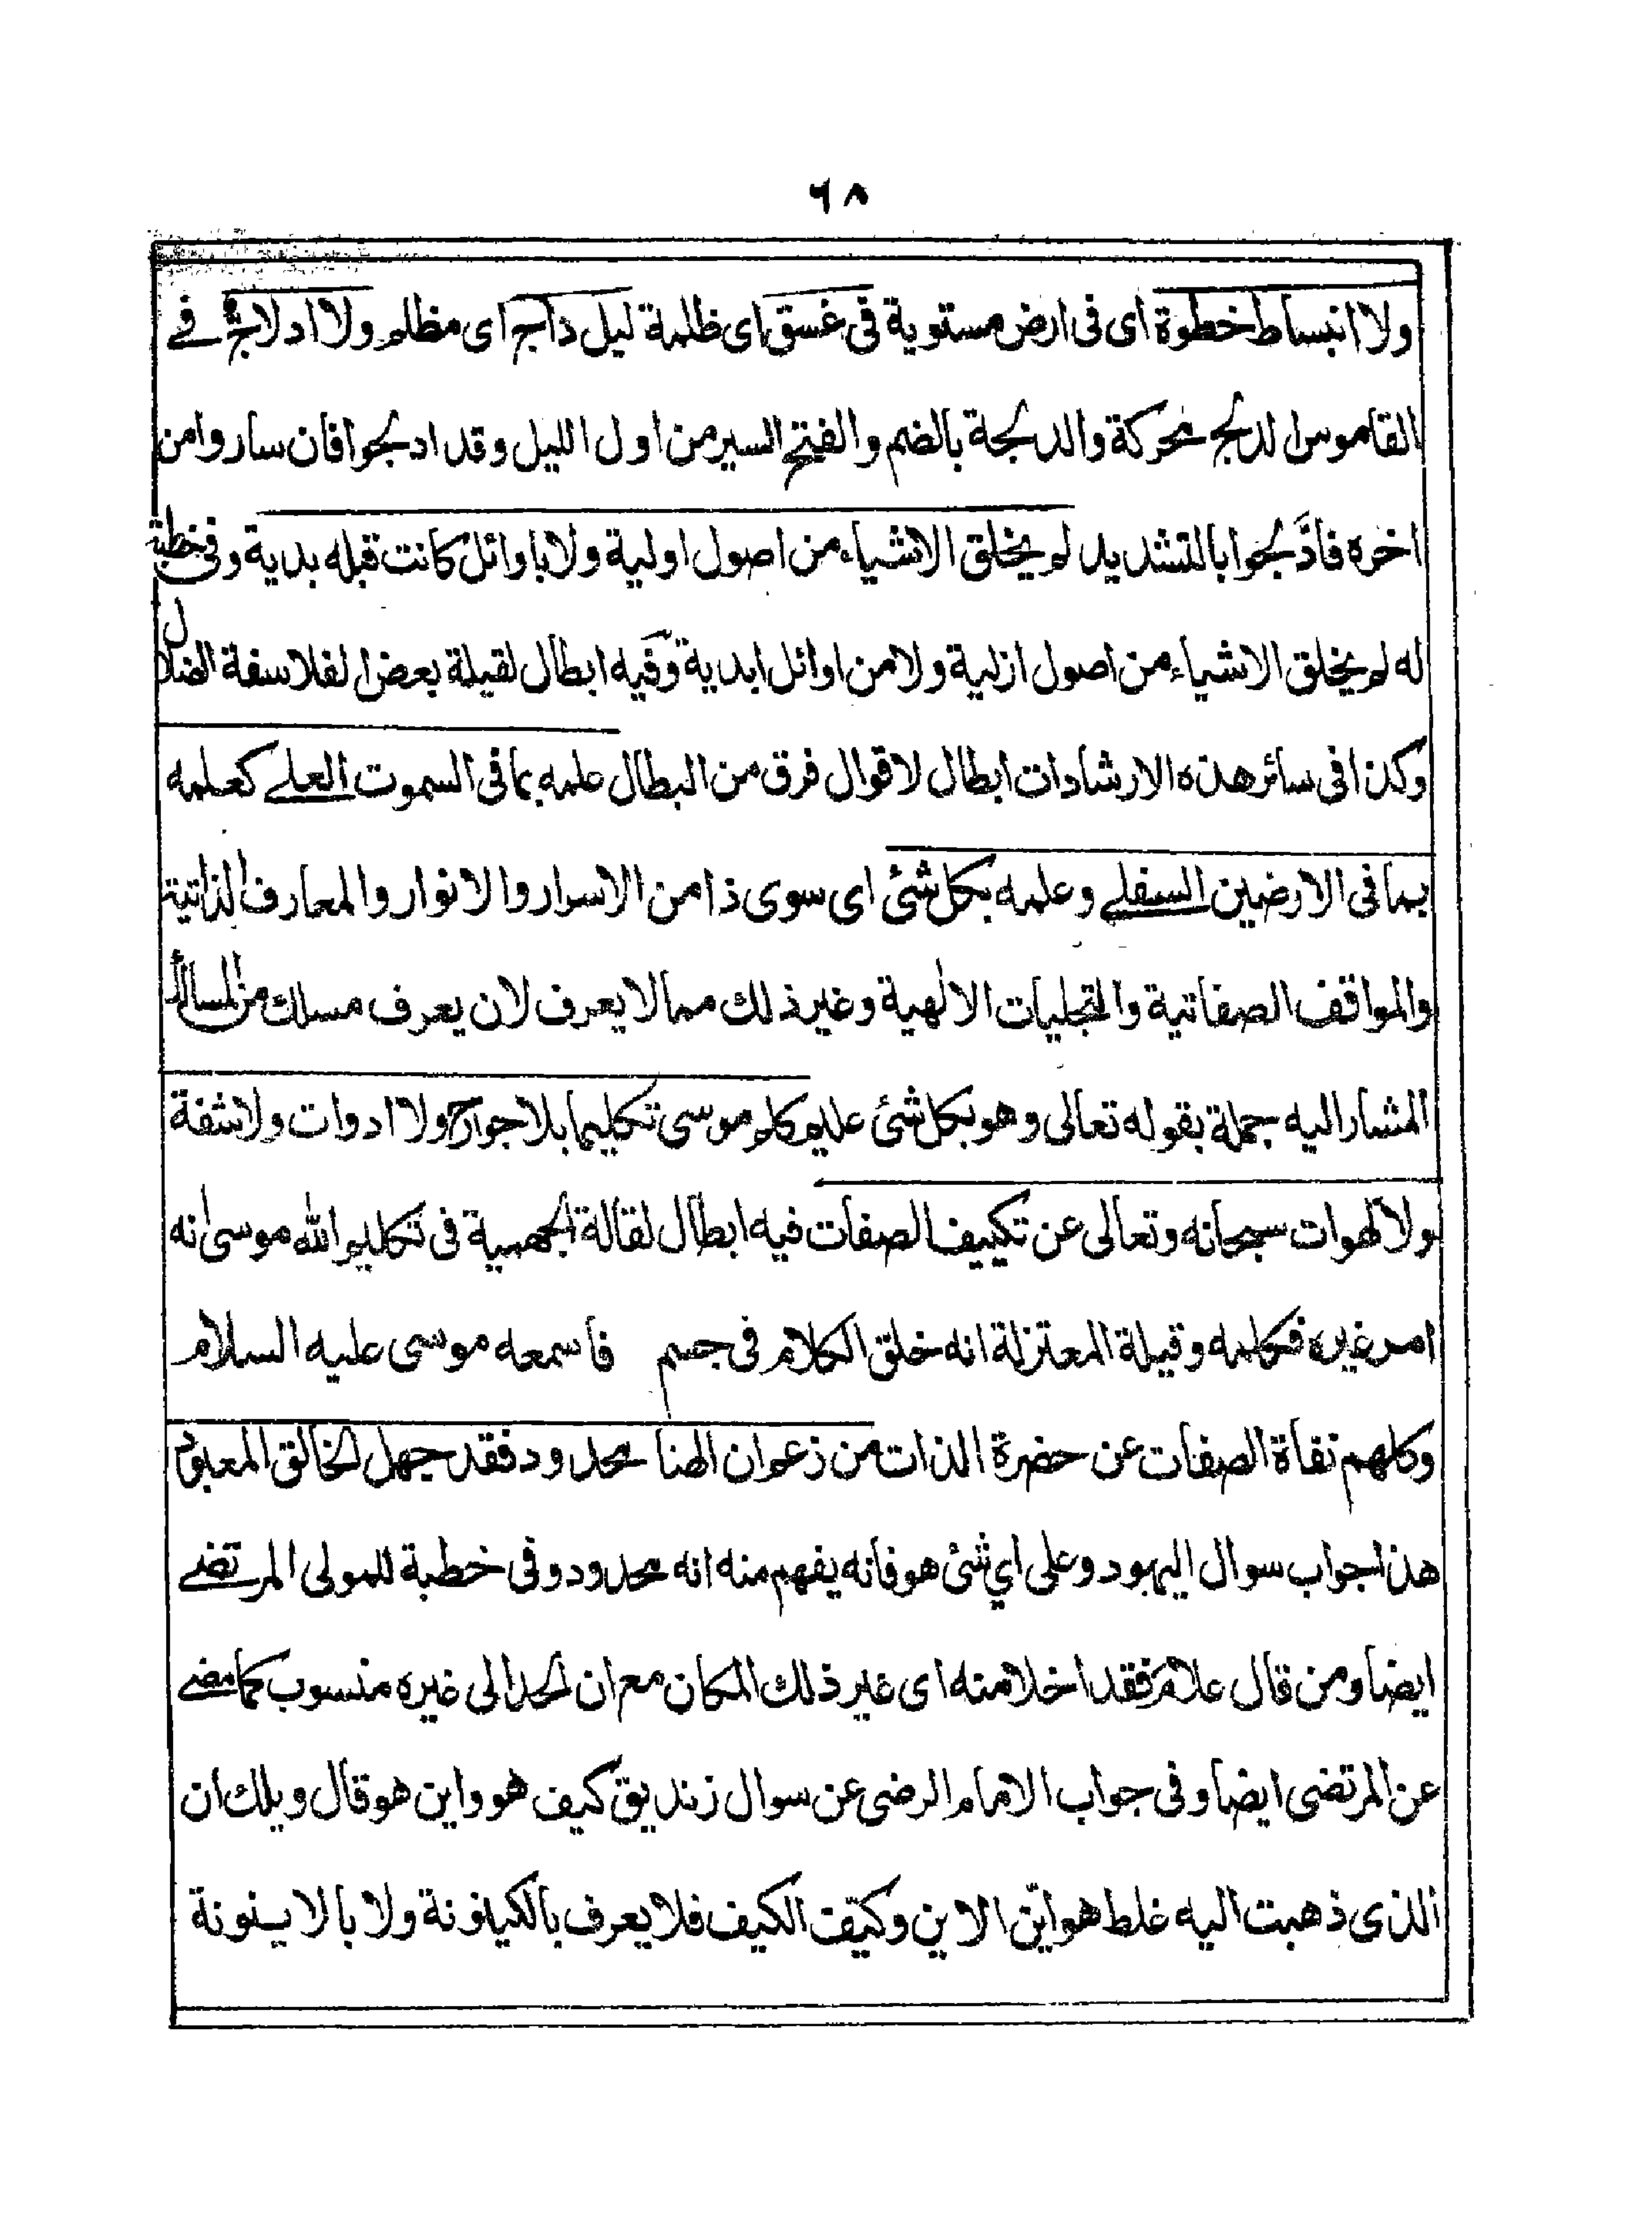 ٦٨
ولا انبساط خطوة اى فى ارض مستوية فى غسق اى ظلمة ليل داج اى مظلم ولا ادلاج فے
القاموس الدلج محركة والدلجة بالضم والفتح السير من اول الليل وقد ادلجوا فان ساروا من
اخره فادَّلجوا بالتشديد لم يخلق الاشياء من اصول اولية ولا باوائل كانت قبله بدية وفى خطبة
له لم يخلق الاشياء من اصول ازلية ولا من اوائل ابدية وفيه ابطال لقيلة بعض الفلاسفة الضلال
وكذا فى سائر هذه الارشادات ابطال لاقوال فرق من البطال علمه بما فى السموت العلے كعلمه
بما فى الارضين السفلے وعلمه بكل شئ اى سوى ذا من الاسرار والانوار والمعارف الذاتية
والمواقف الصفاتية والتجليات الالهية وغير ذلك مما لا يعرف لان يعرف مسلك من المسالك
المشار اليه جملة بقوله تعالى وهو بكل شئ عليم كلم موسى تكليما بلا جوارح ولا ادوات ولا شفة
ولا لهوات سبحانه وتعالى عن تكييف الصفات فيه ابطال لقالة الجهمية فى تكليم الله موسى انه
امر غيره فكلمه وقيلة المعتزلة انه خلق الكلام فى جسم فاسمعه موسى عليه السلام
وكلهم نفاة الصفات عن حضرة الذات من زعم ان الهنا محدود فقد جهل الخالق المعبود
هذا جواب سوال اليهود وعلى اي شئ هو فانه يفهم منه انه محدود وفى خطبة للمولى المرتضے
ايضا ومن قال علام فقد اخلا منه اى غير ذلك المكان مع ان الحد الى غيره منسوب كما مضے
عن المرتضى ايضا وفى جواب الامام الرضى عن سوال زنديق كيف هو واين هو قال ويلك ان
الذى ذهبت اليه غلط هو ايّن الاين وكيّف الكيف فلا يعرف بالكيفونة ولا بالاينونة